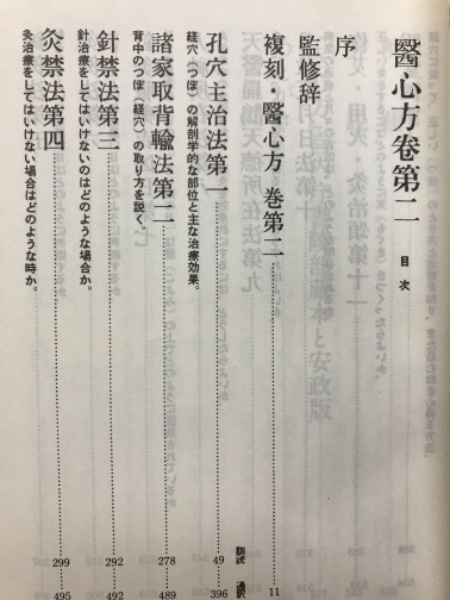 醫心方卷第二
目次
序
監修辞
複刻・醫心方 巻第二 11
訓読 通訳
孔穴主治法第一 49 396
経穴(つぼ)の解剖学的な部位と主な治療効果。
諸家取背輸法第二 278 489
背中のつぼ(経穴)の取り方を説く。
針禁法第三 292 492
針治療をしてはいけないのはどのような場合か。
灸禁法第四 299 495
灸治療をしてはいけない場合はどのような時か。